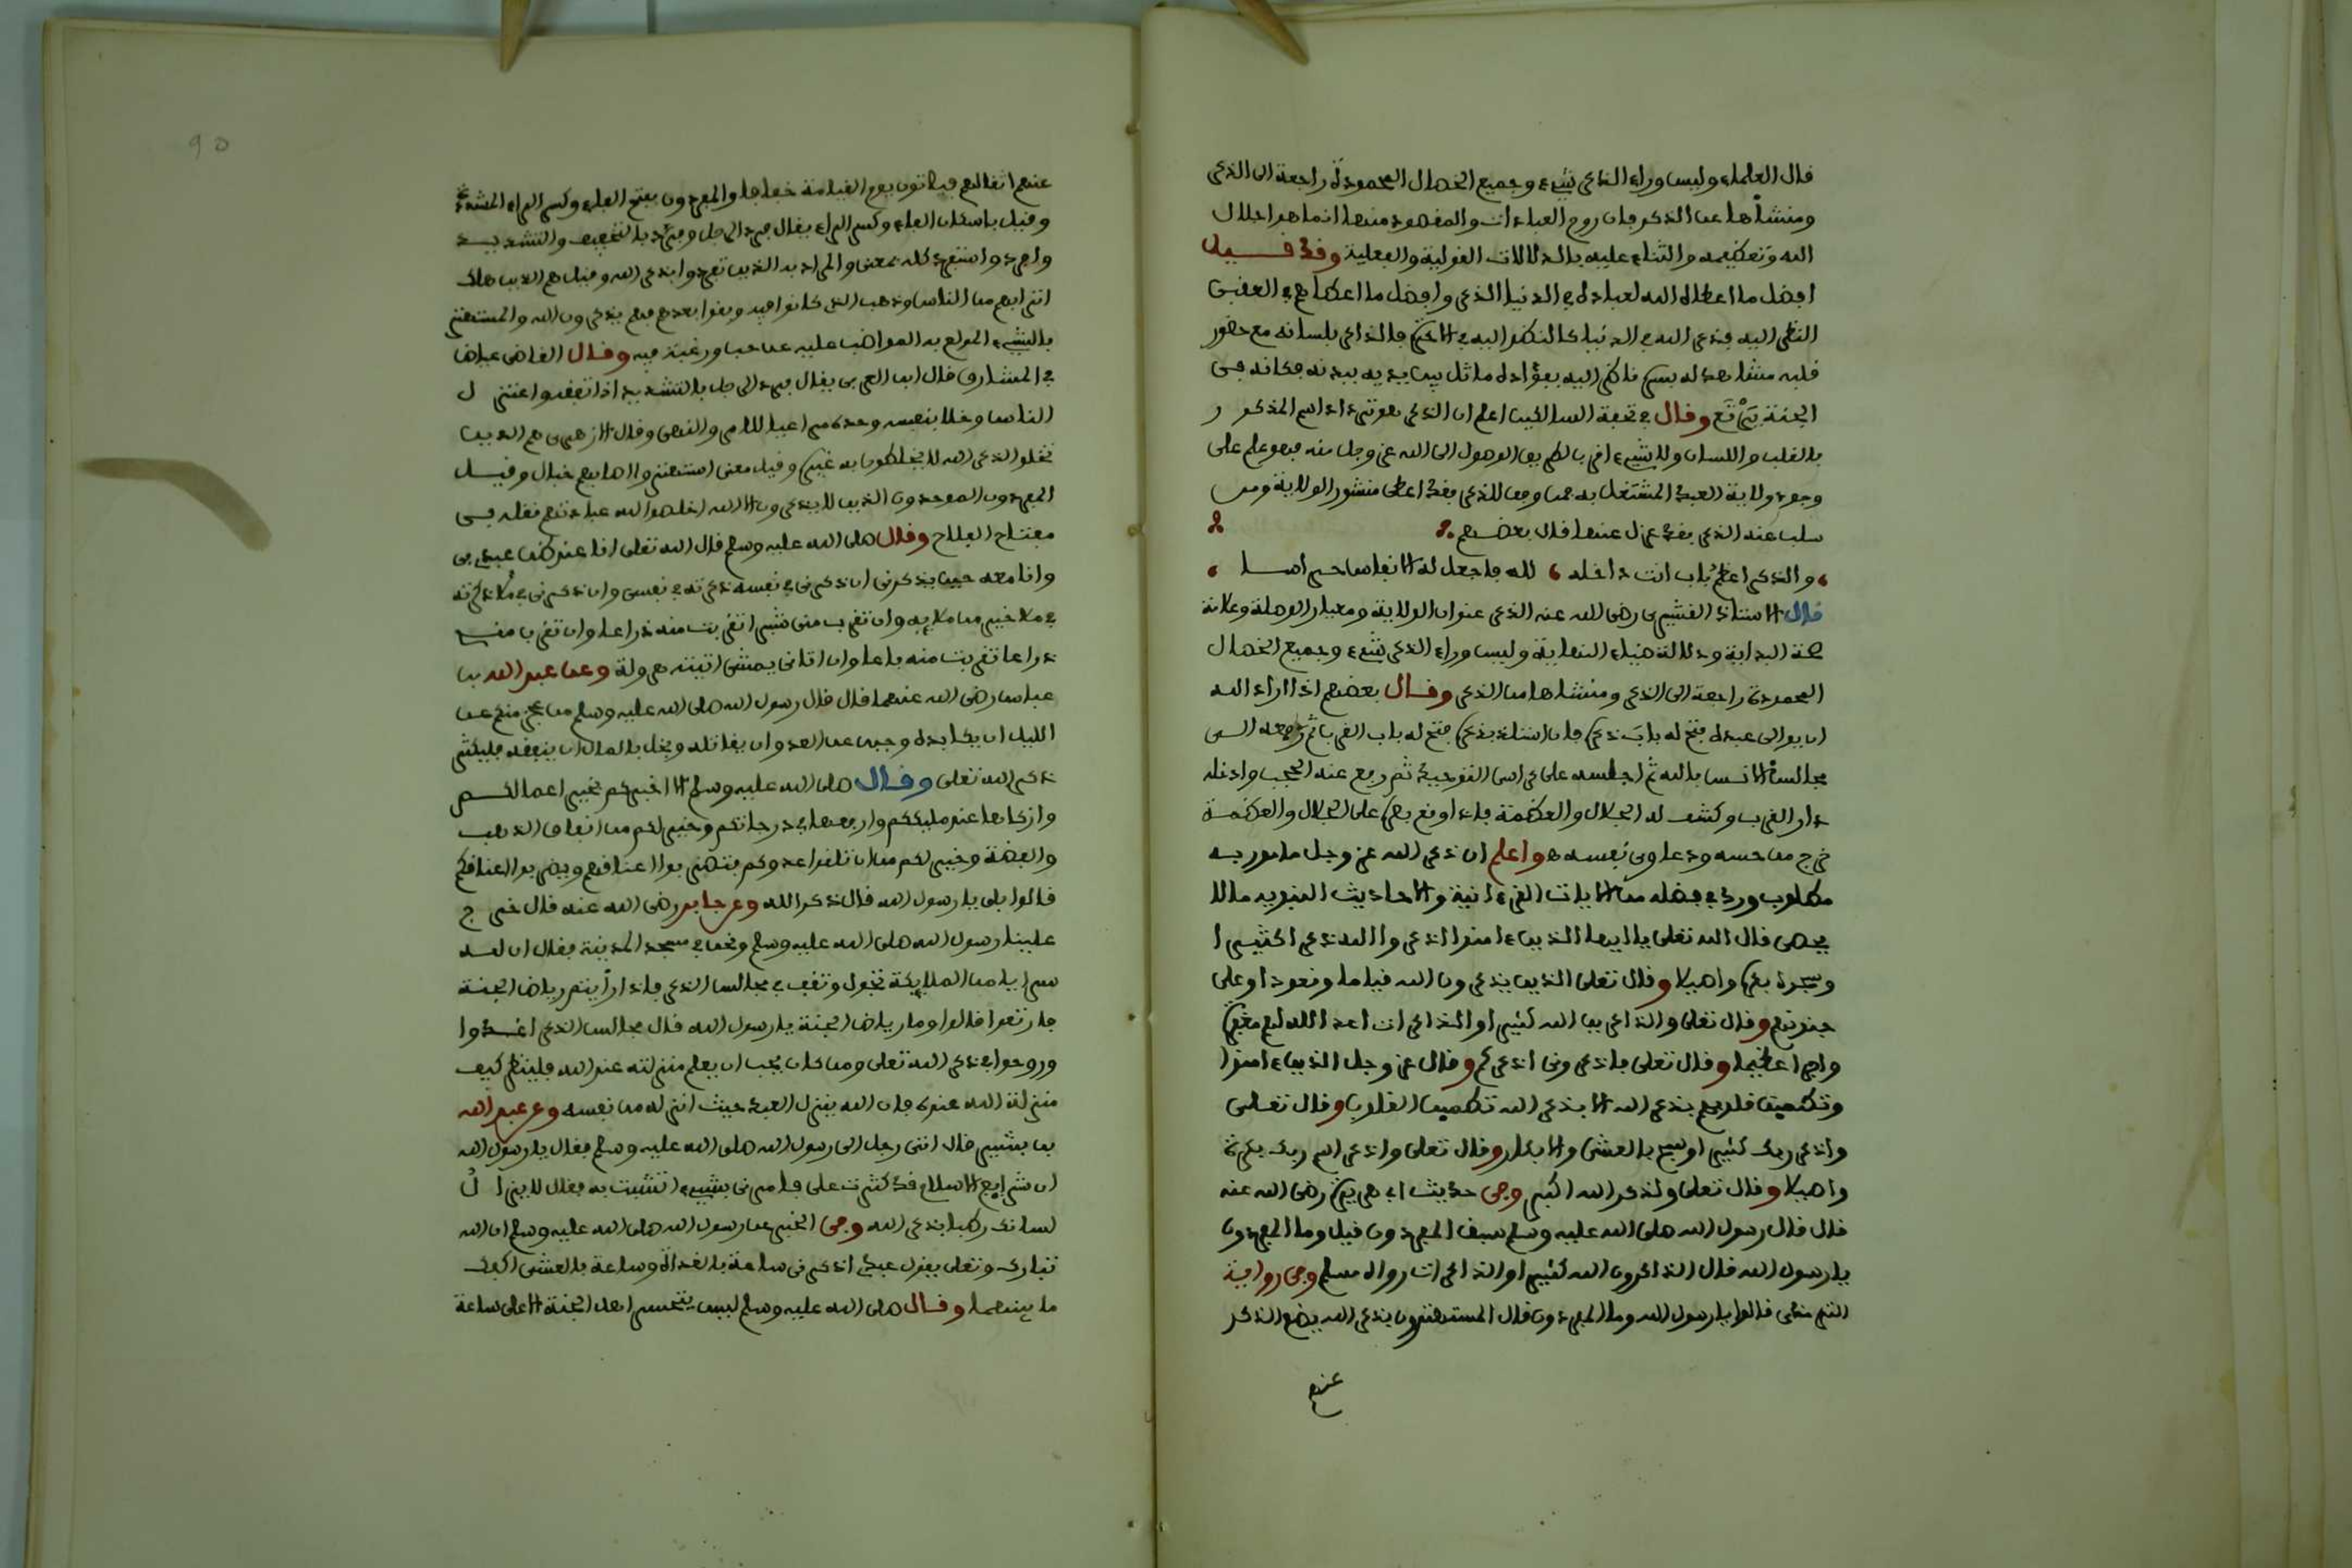 قال العلماء وليس وراء الذكر شيء وجميع الخصال المحمودة راجعة الى الذكر
ومنشأها عن الذكر فان روح العبادات والمقصود منها انما هو اجلال
الله وتعظيمه والثناء عليه بالدلالات القولية والفعلية وقد قيل
افضل ما اعطاه الله لعباده في الدنيا الذكر وافضل ما اعطاهم في العقبى
النظر اليه فذكر الله في الدنيا كالنظر اليه في الاخرة فالذاكر بلسانه مع حضور
قلبه مشاهد له بسره ناظر اليه بفؤاده ماثل بين يديه ببدنه فكانه في
الجنة يرتع وقال في تحفة السالكين اعلم ان الذكر هو ترداد اسم المذكور
بالقلب واللسان ولا شيء اقرب الطرق الوصول الى الله عز وجل منه فهو علم على
وجود ولاية العبد المشتغل به فمن وفق للذكر فقد اعطي منشور الولاية ومن
سلب عنه الذكر فقد عزل عنها قال بعضهم
والذكر اعظم باب انت داخله لله فاجعل له الانفاس حراسا
قال الاستاذ القشيري رضى الله عنه الذكر عنوان الولاية ومنار الوصلة وعلامة
صحة البداية ودلالة ضياء النهاية وليس وراء الذكر شيء وجميع الخصال
المحمودة راجعة الى الذكر ومنشاها من الذكر وقال بعضهم اذا اراد الله
ان يوالى عبده فتح له باب ذكره فان استلذ بذكره فتح له باب القرب ثم رفعه الى
مجالس الانس بالله ثم اجلسه على كراسي التوحيد ثم رفع عنه الحجب وادخله
دار القرب وكشف له الجلال والعظمة فاذا وقع بصره على الجلال والعظمة
خرج من حسه ودعاوى نفسه واعلم ان ذكر الله عز وجل مامور به
مطلوب ورد في فضله من الايات القرءانية والاحاديث النبويه ما لا
يحصى قال الله تعلى يا ايها الذين ءامنوا اذكروا الله ذكرا كثيرا
وسبحوه بكرة واصيلا وقال تعلى الذين يذكرون الله قياما وقعودا وعلى
جنوبهم وقال تعلى والذاكرين الله كثيرا والذاكرات اعد الله لهم مغفرة
واجرا عظيما وقال تعلى فاذكرونى اذكركم وقال عز وجل الذين ءامنوا
وتطمئن قلوبهم بذكر الله الا بذكر الله تطمين القلوب وقال تعلى
واذكر ربك كثيرا وسبح بالعشي والابكار وقال تعلى واذكر اسم ربك بكرة
واصيلا وقال تعلى ولذكر الله اكبر وفى حديث ابى هريرة رضى الله عنه
قال قال رسول الله صلى الله عليه وسلم سبق المفردون قيل وما المفردون
يا رسول الله قال الذاكرون الله كثيرا والذاكرات رواه مسلم وفى رواية
الترمذى قالوا يا رسول الله وما المفردون قال المستهترون بذكر الله يضع الذكر
عنهم
90
عنهم اثقالهم فياتون يوم القيامة خفافا والمفردون بفتح الفاء وكسر الراء المشددة
وقيل باسكان الفاء وكسر الراء يقال فرد الرجل وفرد بالتخفيف والتشديد
وافرد واستفرد كله بمعنى والمراد به الذين تفردوا بذكر الله وقيل هم الذين هلك
اترابهم من الناس وذهب القرن الذي كانوا فيه وبقوا بعدهم فهم يذكرون الله والمستهتر
بالشيء المولع به المواظب عليه عن حب ورغبة فيه وقال القاضى عياض
في المشارق قال ابن العربى يقال فرد الرجل بالتشديد اذا تفقه واعتزل
الناس وخلا بنفسه وحده مراعيا للامر والنهى وقال الازهرى هم الذين
تخلوا لذكر الله لا يخلطون به غيره وقيل معنى استهتروا اصابهم خبال وقيل
المفردون الموحدون الذين لا يذكرون الا الله اخلصوا لله عبادتهم نقله في
مفتاح الفلاح وقال صلى الله عليه وسلم قال الله تعلى انا عند ظن عبدى بى
وانا معه حين يذكرنى ان ذكرنى في نفسه ذكرته في نفسى وان ذكرنى في ملا ذكرته
في ملا خير من ملايه وان تقرب منى شبرا تقربت منه ذراعا وان تقرب منى
ذراعا تقربت منه باعا وان اتانى يمشى اتيته هرولة وعن عبد الله بن
عباس رضى الله عنهما قال قال رسول الله صلى الله عليه وسلم من عجز منكم عن
الليل ان يكابده وجبن عن العدو ان يقاتله وبخل بالمال ان ينفقه فليكثر
ذكر الله تعلى وقال صلى الله عليه وسلم الا اخبركم بخير اعمالكم
وازكاها عند مليككم وارفعها في درجاتكم وخير لكم من انفاق الذهب
والفضة وخير لكم من ان تلقوا عدوكم فتضربوا اعناقهم ويضربوا اعناقكم
قالوا بلى يا رسول الله قال ذكر الله وعن جابر رضى الله عنه قال خرج
علينا رسول الله صلى الله عليه وسلم ونحن في مسجد المدينة فقال ان لله
سرايا من الملايكة تجول وتقف في مجالس الذكر فاذا رأيتم رياض الجنة
فارتعوا قالوا وما رياض الجنة يا رسول الله قال مجالس الذكر اغدوا
وروحوا في ذكر الله تعلى ومن كان يحب ان يعلم منزلته عند الله فلينظر كيف
منزلة الله عنده فان الله ينزل العبد حيث انزله من نفسه وعن عبد الله
بن بشير قال اتى رجل الى رسول الله صلى الله عليه وسلم فقال يا رسول الله
ان شرايع الاسلام قد كثرت على فامرنى بشيء اتشبث به فقال لا يزال
لسانك رطبا بذكر الله وفى الخبر عن رسول الله صلى الله عليه وسلم ان الله
تبارك وتعلى يقول عبدى اذكرنى ساعة بالغداة وساعة بالعشى اكفك
ما بينهما وقال صلى الله عليه وسلم ليس يتحسر اهل الجنة الا على ساعة